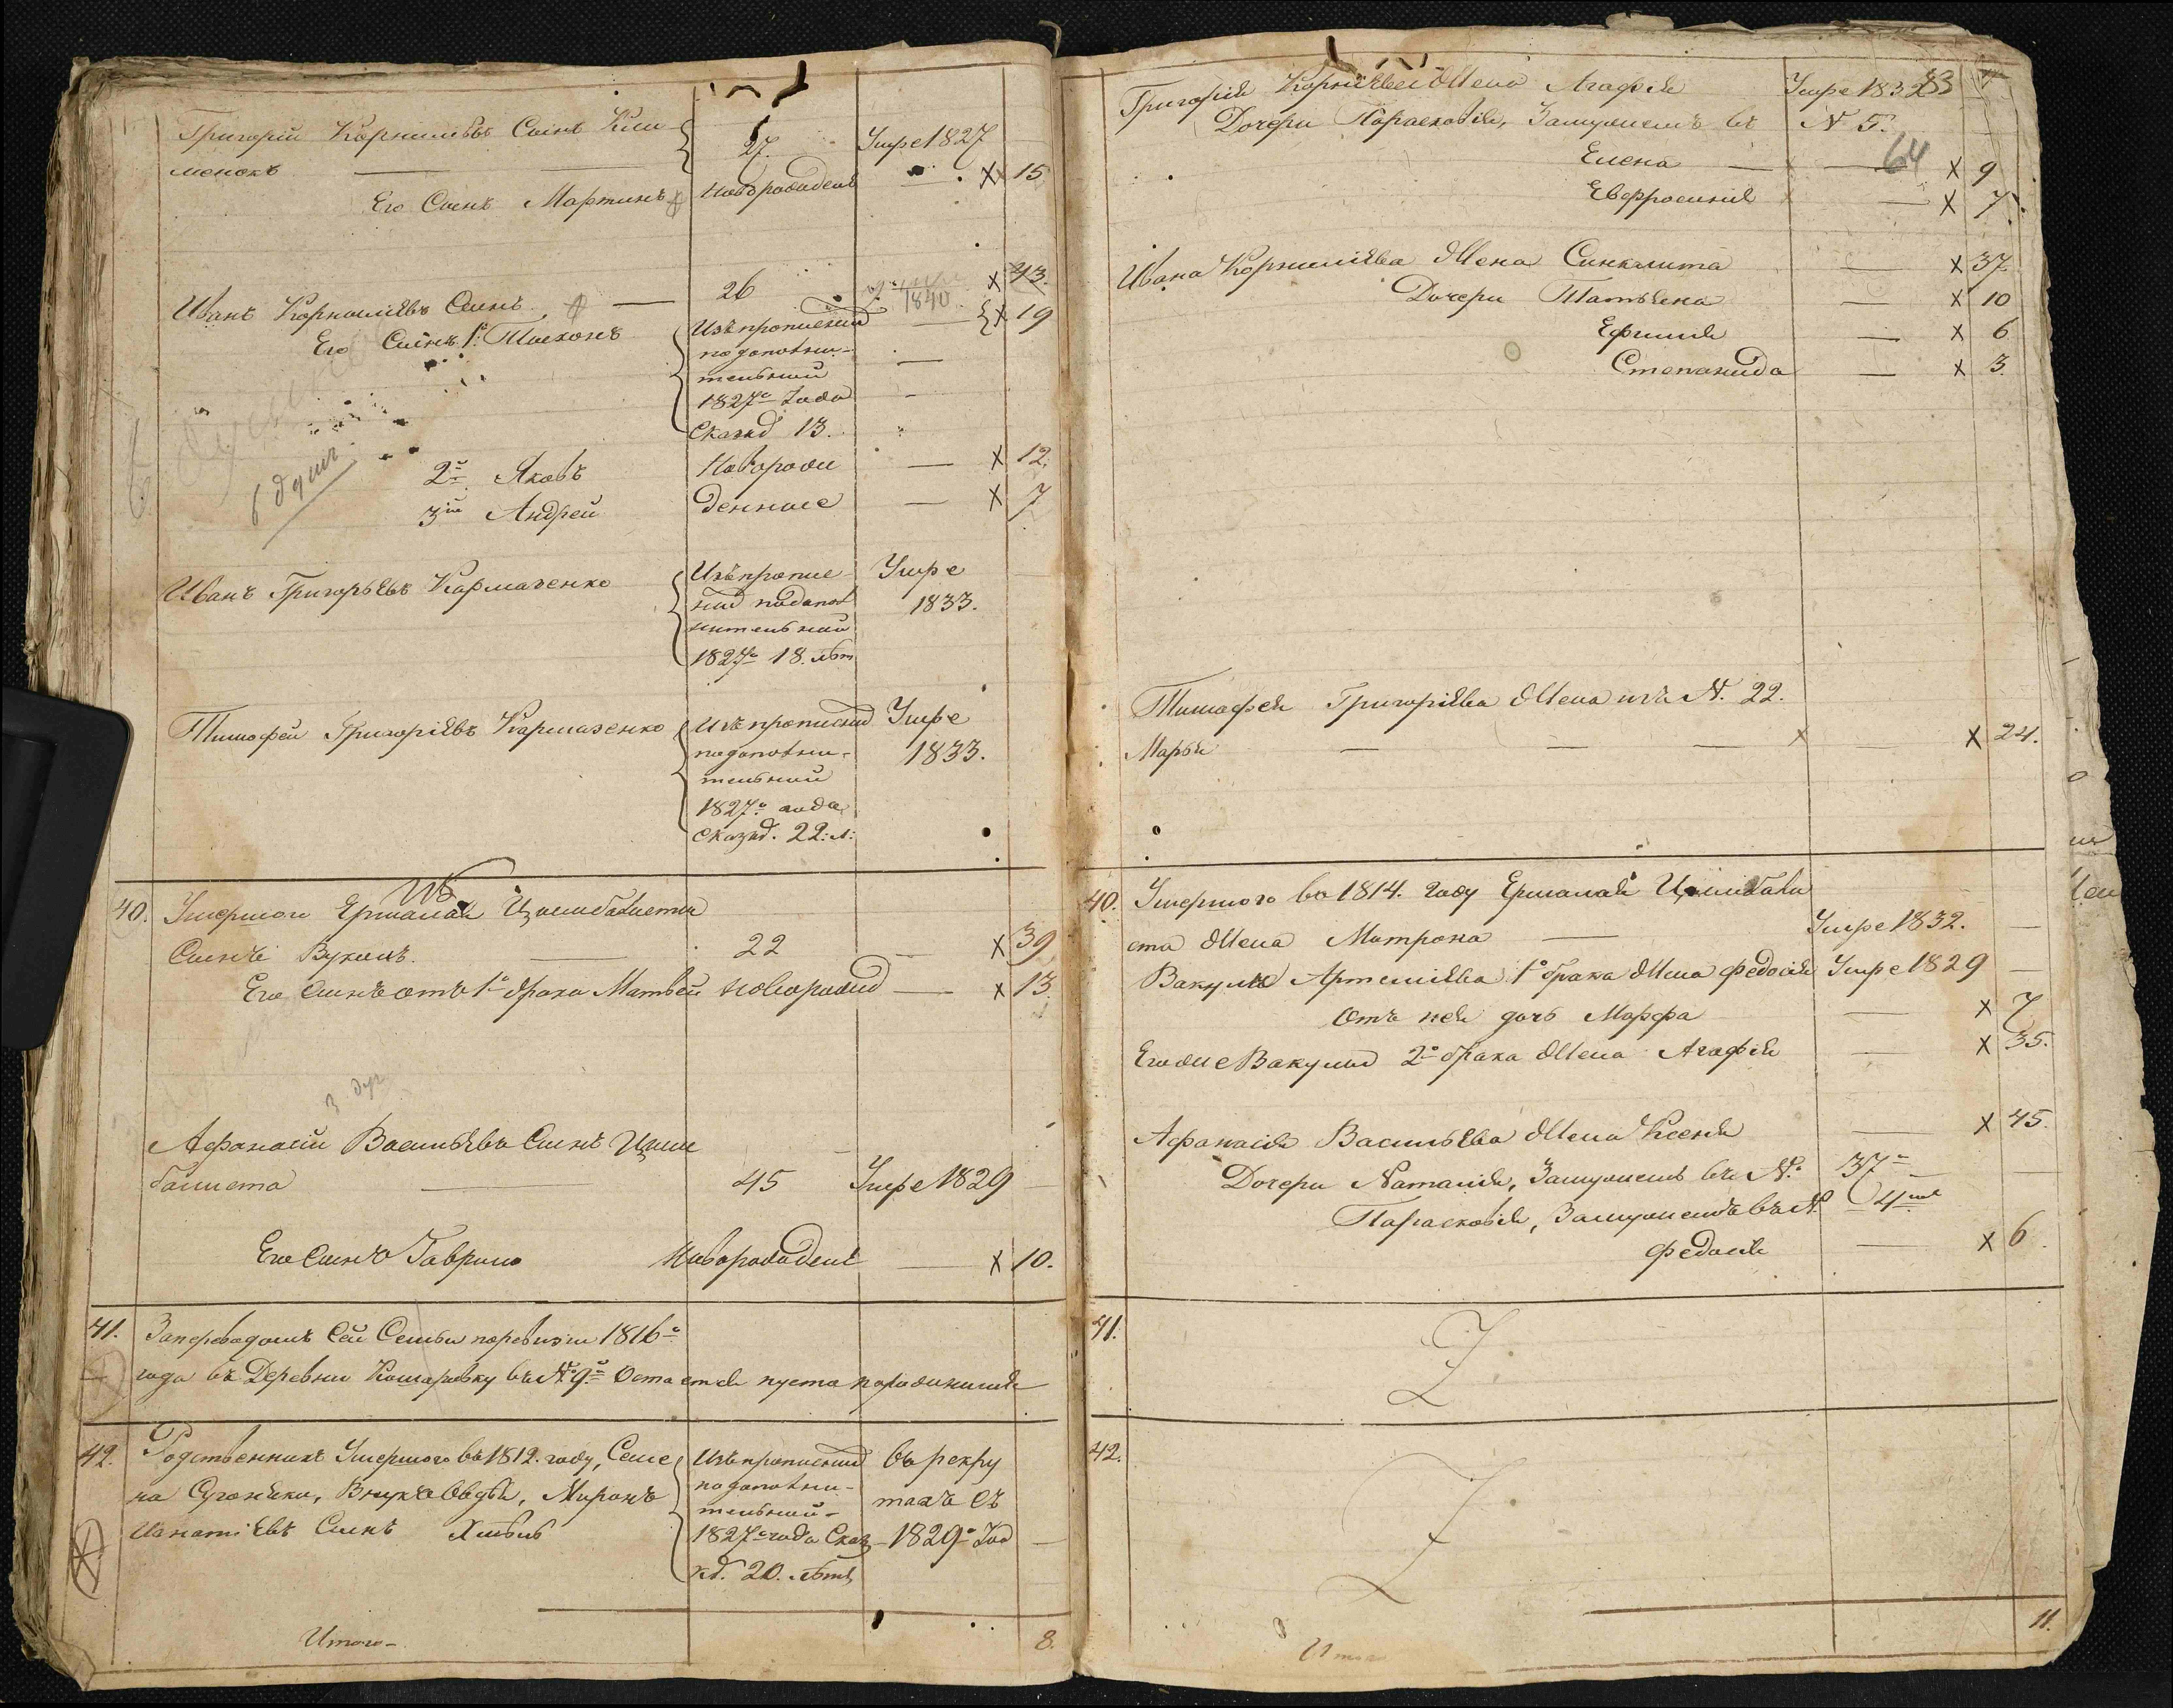 Григорій Корнилѣвъ Сынъ Кли 27. Умре 1827
менокъ
Его Сынъ Мартинъ новорожденъ — х 15
Иванъ Корниліевъ Сынъ — 26 1840 х 43.
Его Сынъ 1й Тихонъ Изъ прописной — х 19
по дополни-
тельной
1827го Года
Сказкѣ 13.
6 душъ
2й Яковъ Новорож — х 12.
3ій Андрей денные — х 7
Иванъ Григорьевъ Кармазенко Изъ пропис- Умре
ной по допол 1833.
нительной
1827го 18. лѣтъ
Тимофей Григоріевъ Кармазенко Изъ прописной Умре
по дополни- 1833.
тельной
1827го года
сказкѣ. 22: л:
40. Умершого Ермолая
Сынъ Вукулъ. — 22 — х 39
Его Сынъ отъ 1го брака Матвѣй новорожд — х 13.
3 душ
Афанасій Васильевъ Сынъ Цим
балиста — 45 Умре 1829
Его Сынъ Гаврило Новорожденъ — х 10.
41. За переводомъ сей Семьи по ревизіи 1816го
года въ Деревню Комаровку въ № 9й Остается пуста
42. Родственникъ Умершого въ 1812. году, Семе Изъ прописной въ рекру
на Внукъ Миронъ по дополни- тахъ съ
Игнатіевъ Сынъ тельной- 1829го Год
1827го года Сказ-
кѣ. 20. лѣтъ
Итого- 8.
Григорія Корнилѣва Жена Агафія Умре 1832 83
Дочери Парасковія, Замужемъ въ № 5.
64
Елена — х 9
Евфросинія — х 7.
Ивана Корниліева Жена Синклита — х 37.
Дочери Татьяна — х 10
Ефимія — х 6
Степанида — х 3.
Тимофея Григоріева Жена изъ №. 22.
Марья — — — х х 24.
40. Умершого въ 1814. году Ермолая Цимбали
ста Жена Матрона — Умре 1832.
Вакулы Артеміева 1го брака Жена Федосія Умре 1829
Отъ нея дочь Марфа — х 7
Его же Вакулы 2го брака Жена Агафія — х 35.
Афанасія Васильева Жена Ксенія — х 45.
Дочери Наталія, Замужемъ въ №. 37й
Парасковія, Замужемъ въ №. 4мъ
Федосія — х 6.
41.
42.
Итого 11.